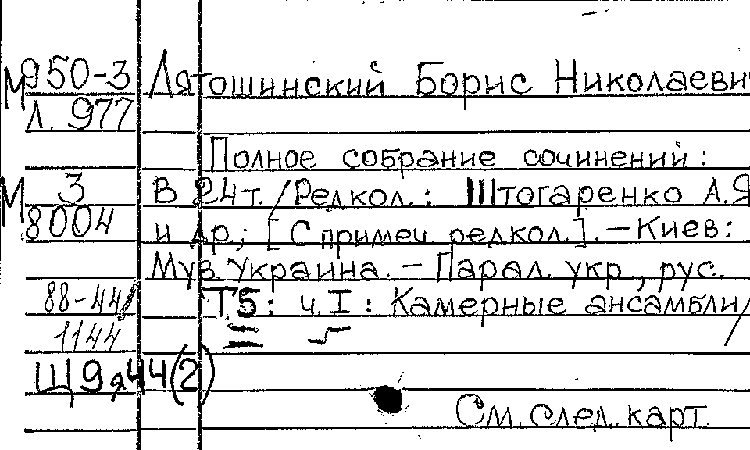 М950-3 Лятошинский Борис Николаевич
Л. 977
Полное собрание сочинений:
М 3 В 24т./Редкол.: Штогаренко А.Я
8004 и др.; [С примеч. редкол.].-Киев:
Муз. Украина. - Парал. укр., рус.
88-44 Т.5: ч.I: Камерные ансамбли/
1144
Щ9я44(2)
См. след. карт.